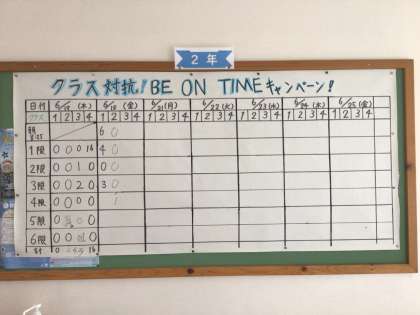 2年
クラス対抗! BE ON TIMEキャンペーン!
日付 6/18(金) 6/21(月) 6/22(火) 6/23(水) 6/24(木) 6/25(金)
クラス 1 2 3 4 1 2 3 4 1 2 3 4 1 2 3 4 1 2 3 4 1 2 3 4 1 2 3 4
朝 8:25 6 0
1限 0 0 0 16 4 0
2限 0 0 1 0 0 0
3限 0 0 2 0 3 0
4限 0 0 0 0 1
5限 0 0 0
6限 0 0 0
計 0 16